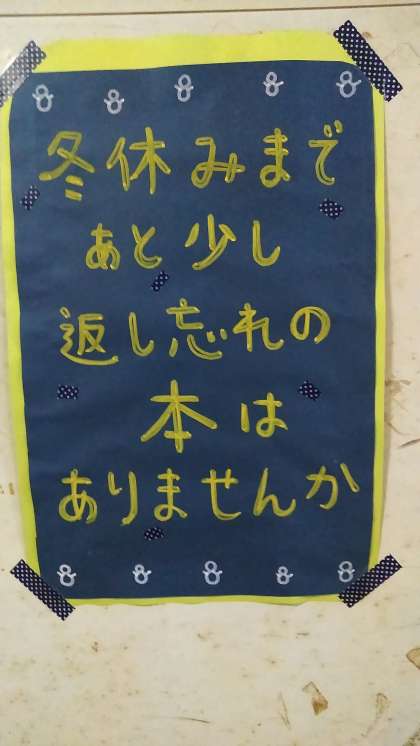 冬休みまで
あと少し
返し忘れの
本は
ありませんか